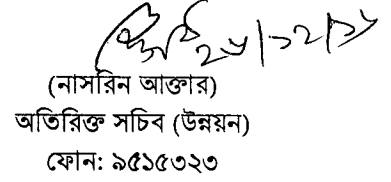 (নাসরিন আক্তার)
অতিরিক্ত সচিব (উন্নয়ন)
ফোন: ৯৫১৫৩২৩